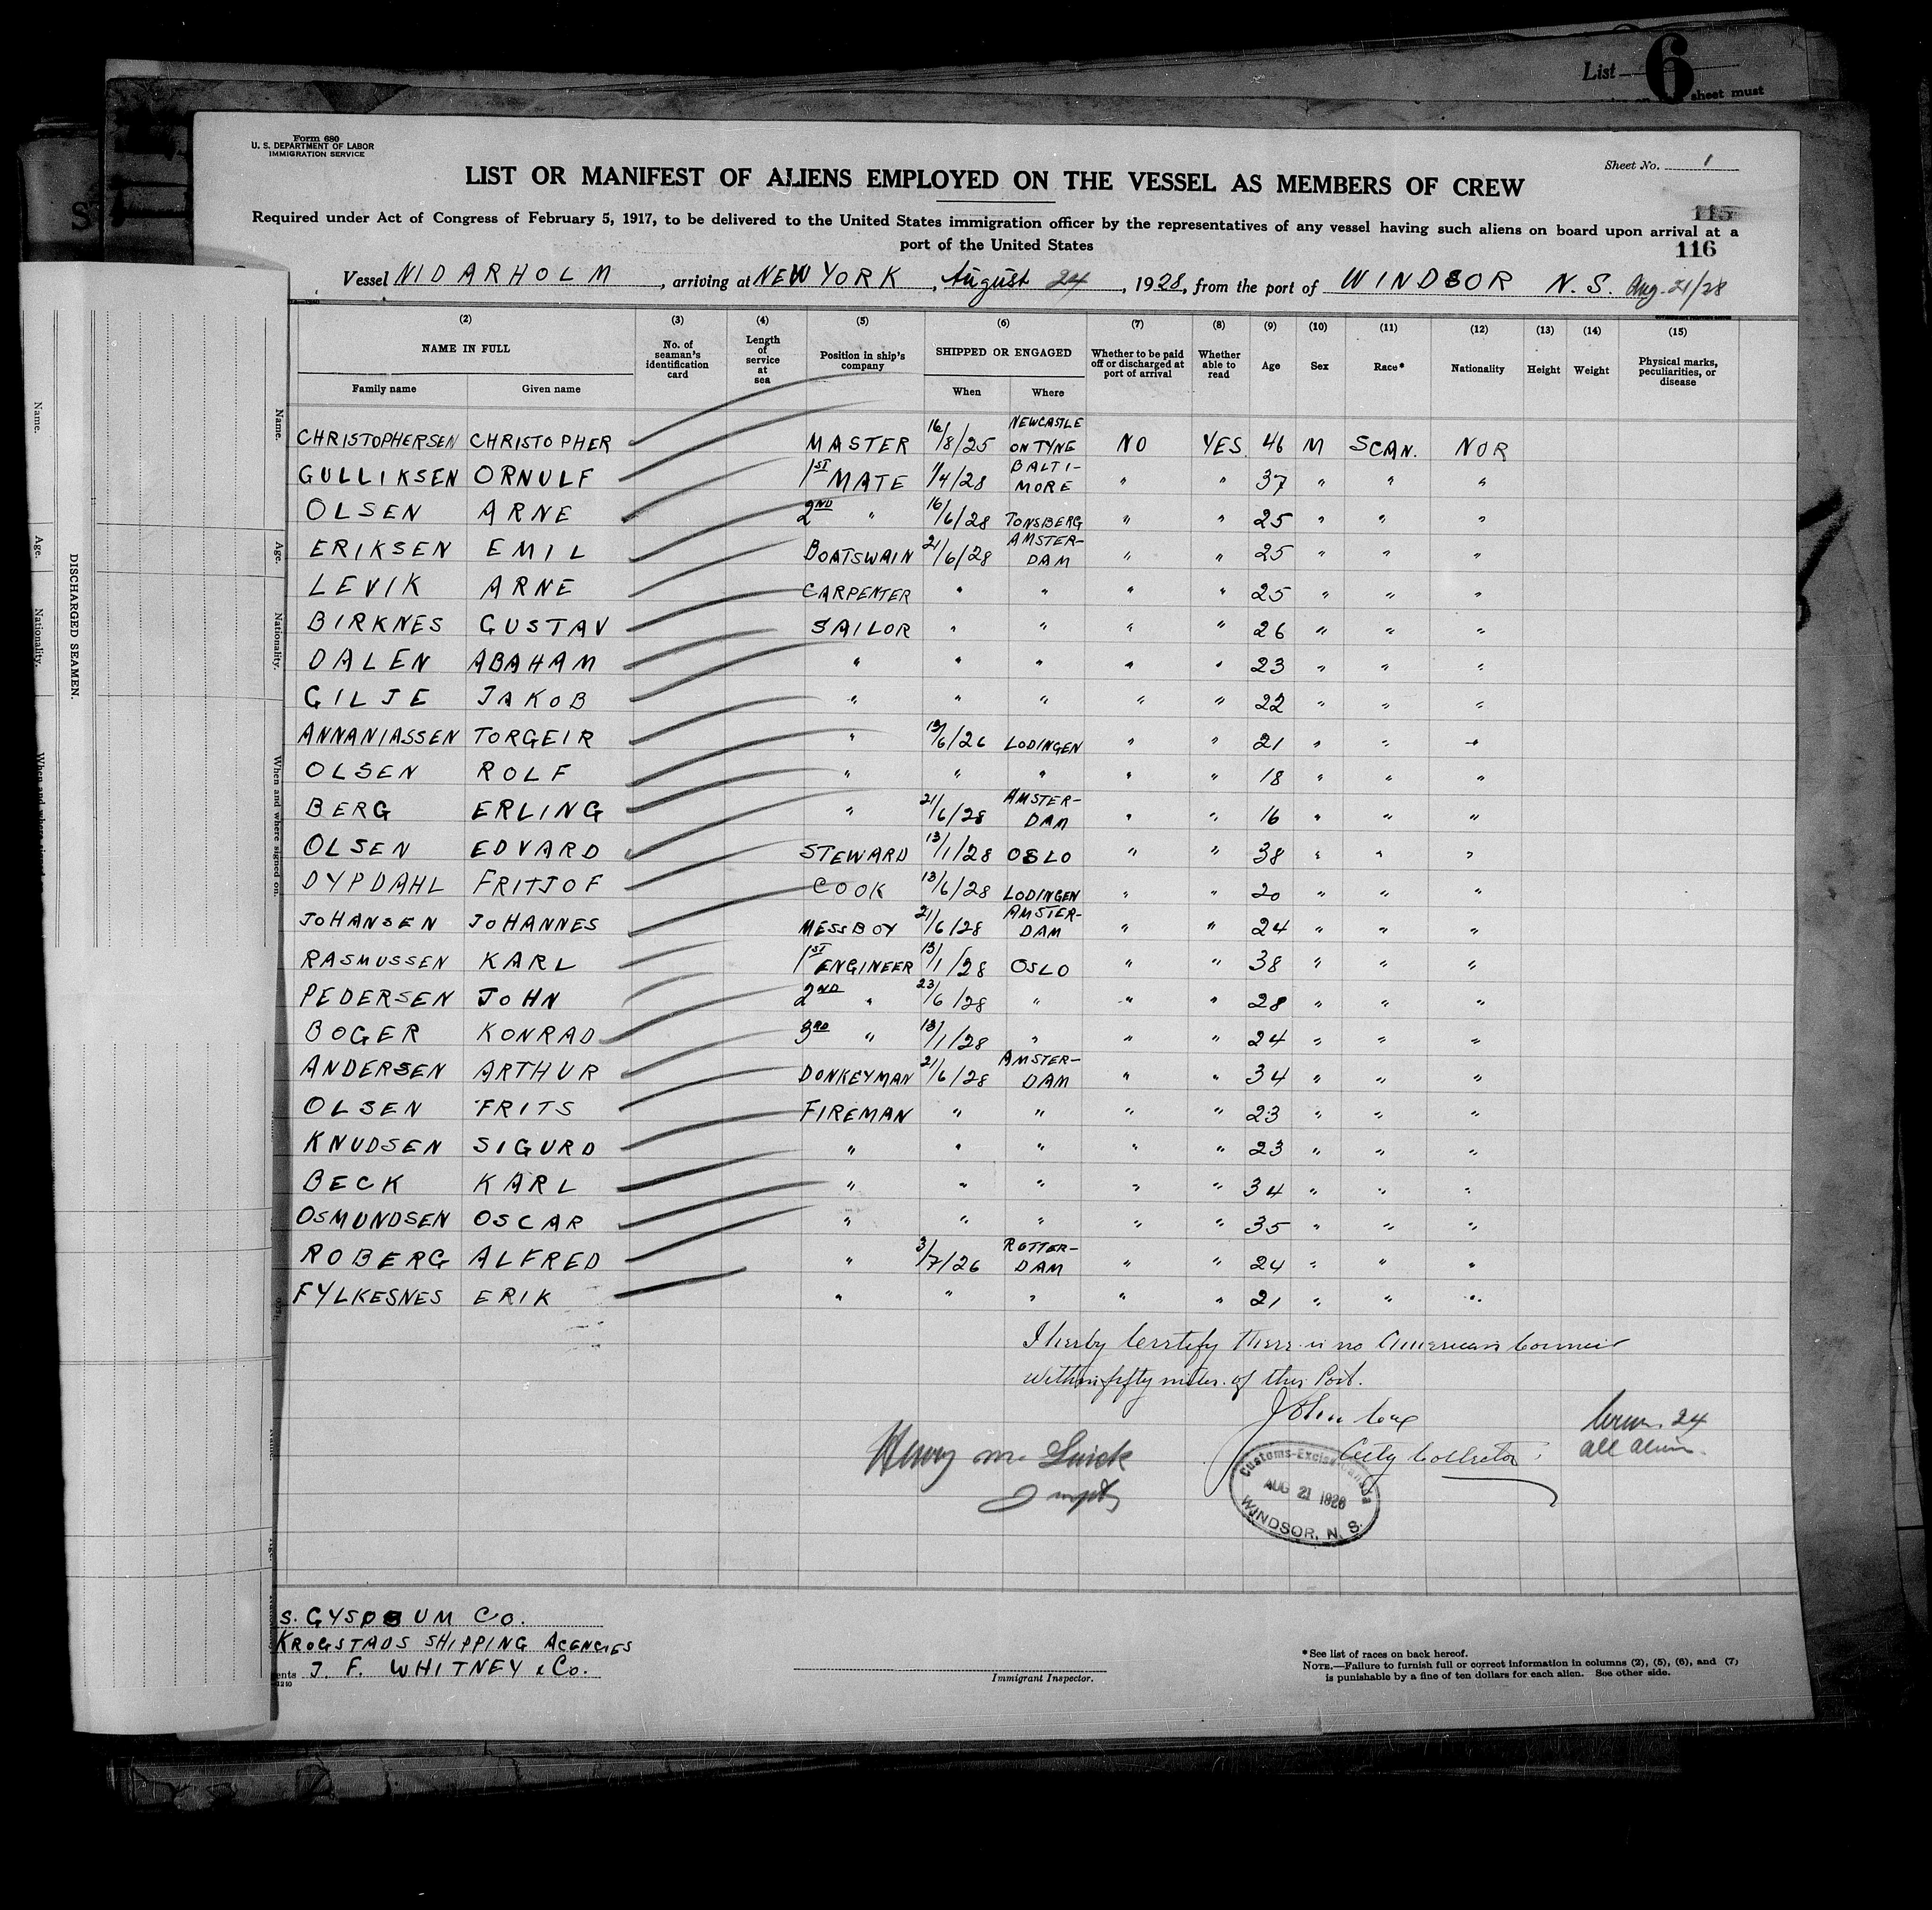 List 6
sheet must
Form 680
U. S. DEPARTMENT OF LABOR
IMMIGRATION SERVICE
Sheet No. 1
LIST OR MANIFEST OF ALIENS EMPLOYED ON THE VESSEL AS MEMBERS OF CREW
115
Required under Act of Congress of February 5, 1917, to be delivered to the United States immigration officer by the representatives of any vessel having such aliens on board upon arrival at a
port of the United States
116
Vessel NIDARHOLM, arriving at NEW YORK, August 24, 1928, from the port of WINDSOR N.S. Aug. 21/28
(2) (3) (4) (5) (6) (7) (8) (9) (10) (11) (12) (13) (14) (15)
NAME IN FULL No. of seaman's identification card Length of service at sea Position in ship's company SHIPPED OR ENGAGED Whether to be paid off or discharged at port of arrival Whether able to read Age Sex Race* Nationality Height Weight Physical marks, peculiarities, or disease
Family name Given name When Where
CHRISTOPHERSEN CHRISTOPHER MASTER 16/8/25 NEWCASTLE ON TYNE NO YES 46 M SCAN. NOR
GULLIKSEN ORNULF 1ST MATE 1/4/28 BALTI-MORE " " 37 " " "
OLSEN ARNE 2ND " 16/6/28 TONSBERG " " 25 " " "
ERIKSEN EMIL BOATSWAIN 21/6/28 AMSTER-DAM " " 25 " " "
LEVIK ARNE CARPENTER " " " " 25 " " "
BIRKNES GUSTAV SAILOR " " " " 26 " " "
DALEN ABAHAM " " " " " 23 " " "
GILJE JAKOB " " " " " 22 " " "
ANNANIASSEN TORGEIR " 13/6/26 LODINGEN " " 21 " " "
OLSEN ROLF " " " " " 18 " " "
BERG ERLING " 21/6/28 AMSTER-DAM " " 16 " " "
OLSEN EDVARD STEWARD 13/1/28 OSLO " " 38 " " "
DYPDAHL FRITJOF COOK 13/6/28 LODINGEN " " 20 " " "
JOHANSEN JOHANNES MESSBOY 21/6/28 AMSTER-DAM " " 24 " " "
RASMUSSEN KARL 1ST ENGINEER 13/1/28 OSLO " " 38 " " "
PEDERSEN JOHN 2ND " 23/6/28 " " " 28 " " "
BOGER KONRAD 3RD " 13/1/28 " " " 24 " " "
ANDERSEN ARTHUR DONKEYMAN 21/6/28 AMSTER-DAM " " 34 " " "
OLSEN FRITS FIREMAN " " " " 23 " " "
KNUDSEN SIGURD " " " " " 23 " " "
BECK KARL " " " " " 34 " " "
OSMUNDSEN OSCAR " " " " " 35 " " "
ROBERG ALFRED " 3/7/26 ROTTER-DAM " " 24 " " "
FYLKESNES ERIK " " " " " 21 " " "
I hereby certify there is no American
within fifty miles of this Port.
John
Collector
24
all alien
Henry M.
Customs-Excise Canada
AUG 21 1928
WINDSOR, N. S.
S. GYSPSUM CO.
KROGSTADS SHIPPING AGENCIES
ents J. F. WHITNEY & Co.
Immigrant Inspector.
*See list of races on back hereof.
NOTE.—Failure to furnish full or correct information in columns (2), (5), (6), and (7)
is punishable by a fine of ten dollars for each alien. See other side.
Name.
Age.
Nationality.
When and where signed on.
DISCHARGED SEAMEN.
Name.
Age.
Nationality.
When and where signed on.